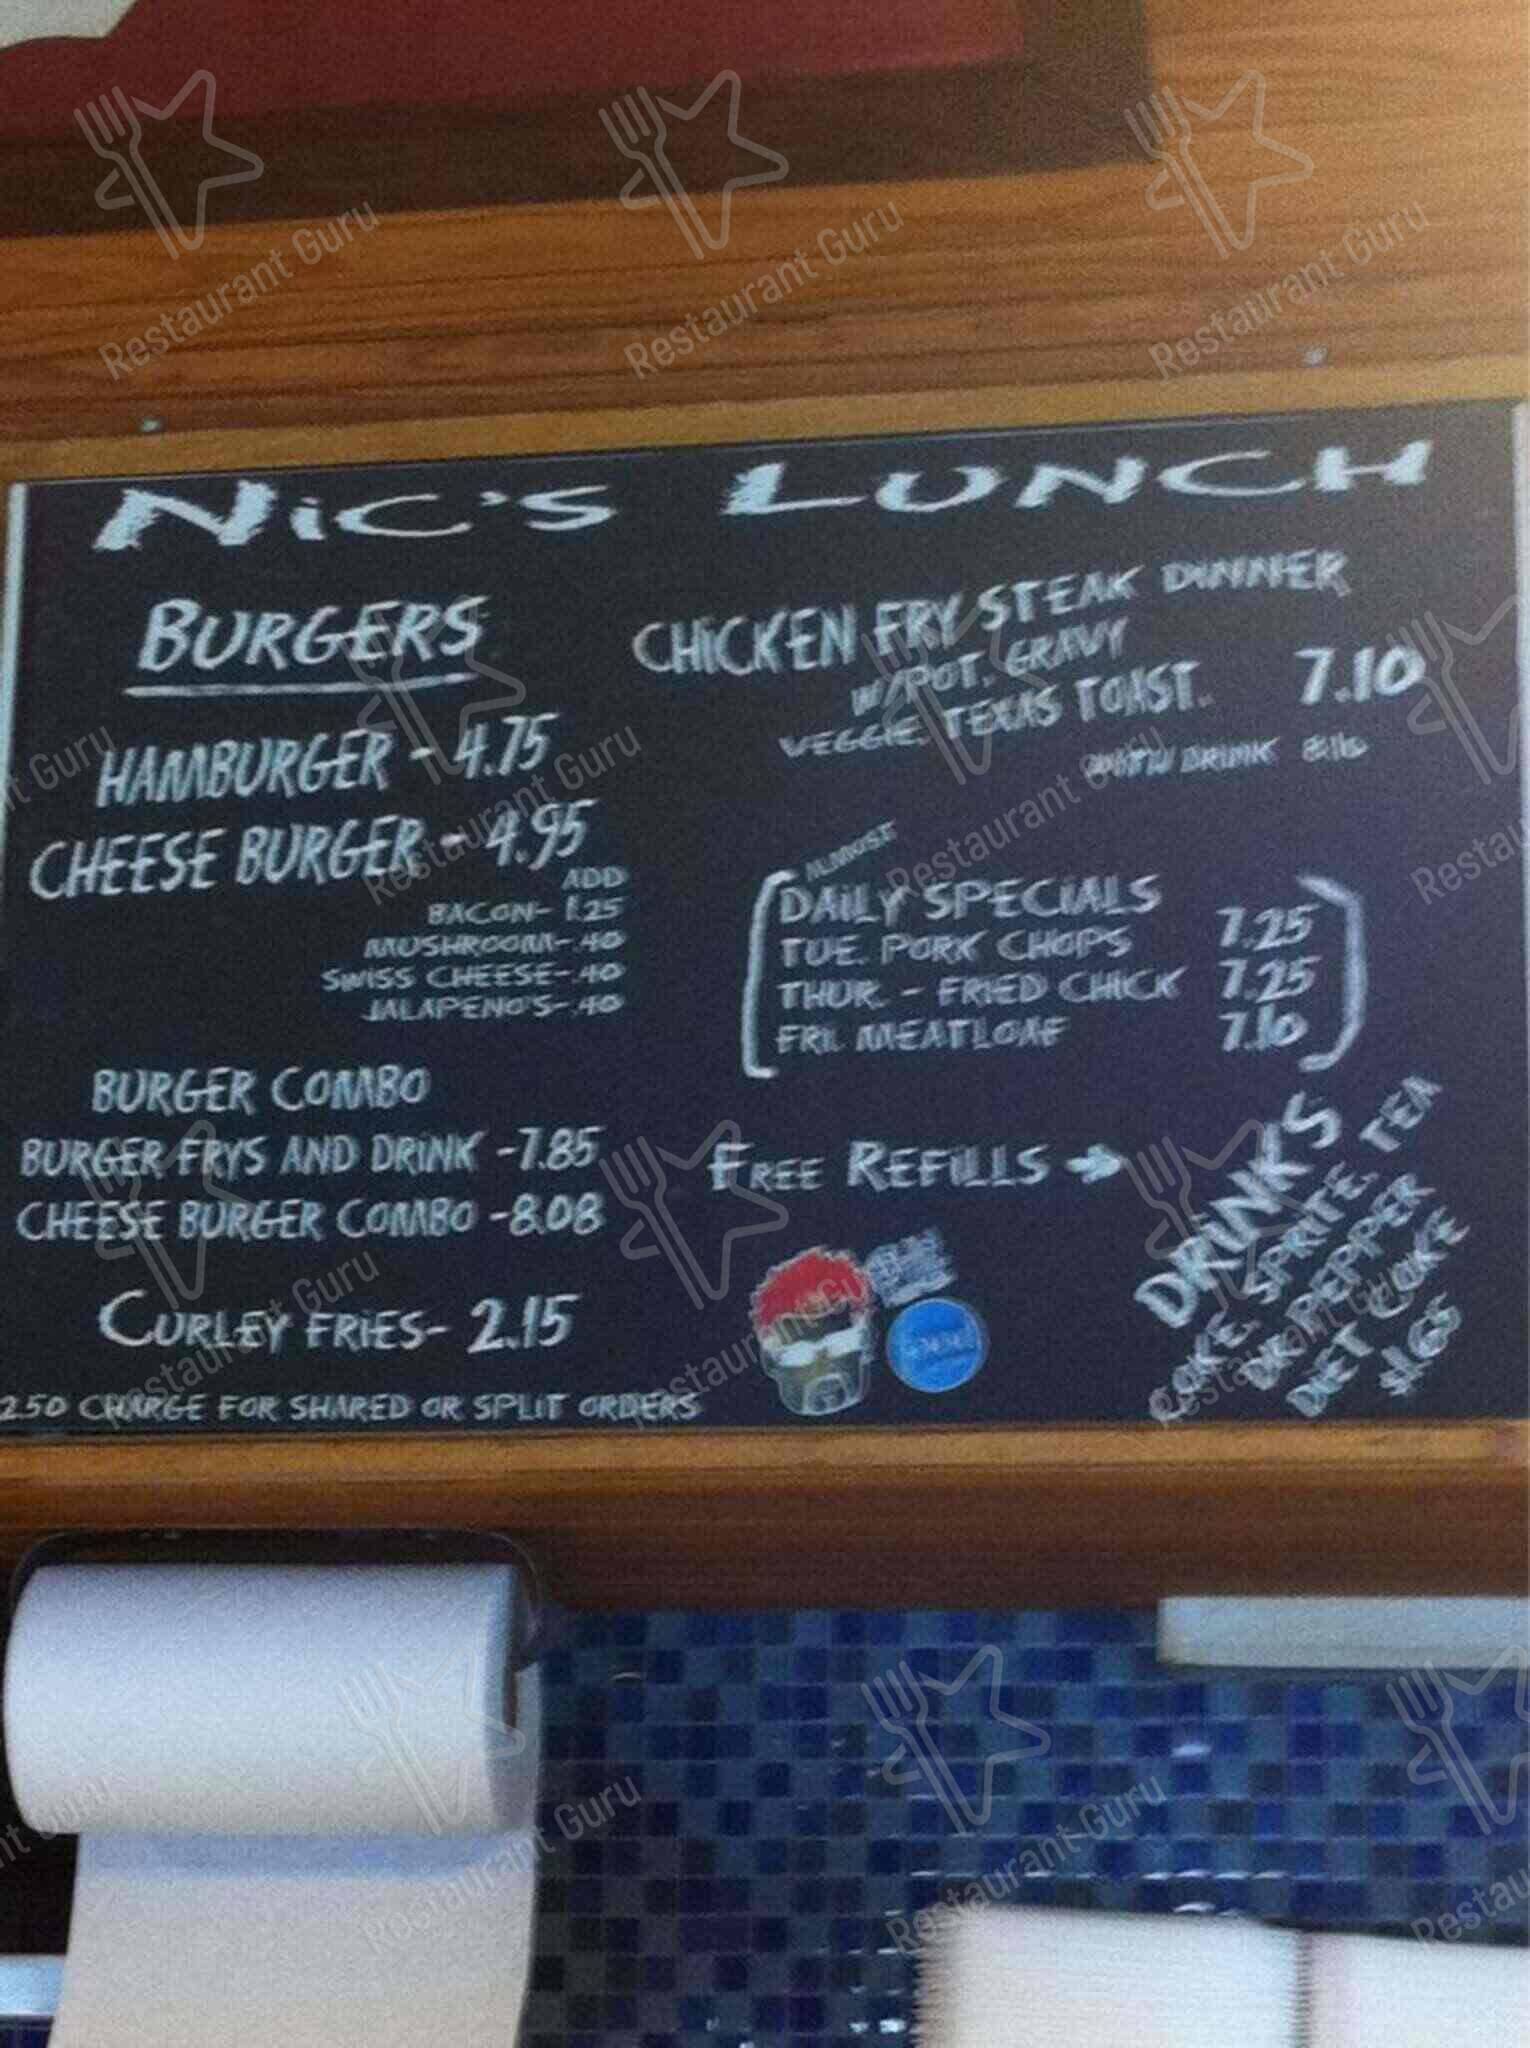 NiC'S LUNCH
BURGERS
HAMBURGER - 4.75
CHEESE BURGER - 4.95
ADD
BACON- 1.25
MUSHROOM- .40
SWISS CHEESE- .40
JALAPENO'S- .40
BURGER COMBO
BURGER FRYS AND DRINK -7.85
CHEESE BURGER COMBO -8.08
CURLEY FRIES- 2.15
2.50 CHARGE FOR SHARED OR SPLIT ORDERS
CHICKEN FRY STEAK DINNER
W/POT. GRAVY
VEGGIE. TEXAS TOAST. 7.10
WITH DRINK
ALMOST
DAILY SPECIALS
TUE. PORK CHOPS 7.25
THUR. - FRIED CHICK 7.25
FRI. MEATLOAF 7.10
FREE REFILLS →
DRINKS
COKE, SPRITE, TEA
DR. PEPPER
DIET COKE
$1.65
Restaurant Guru